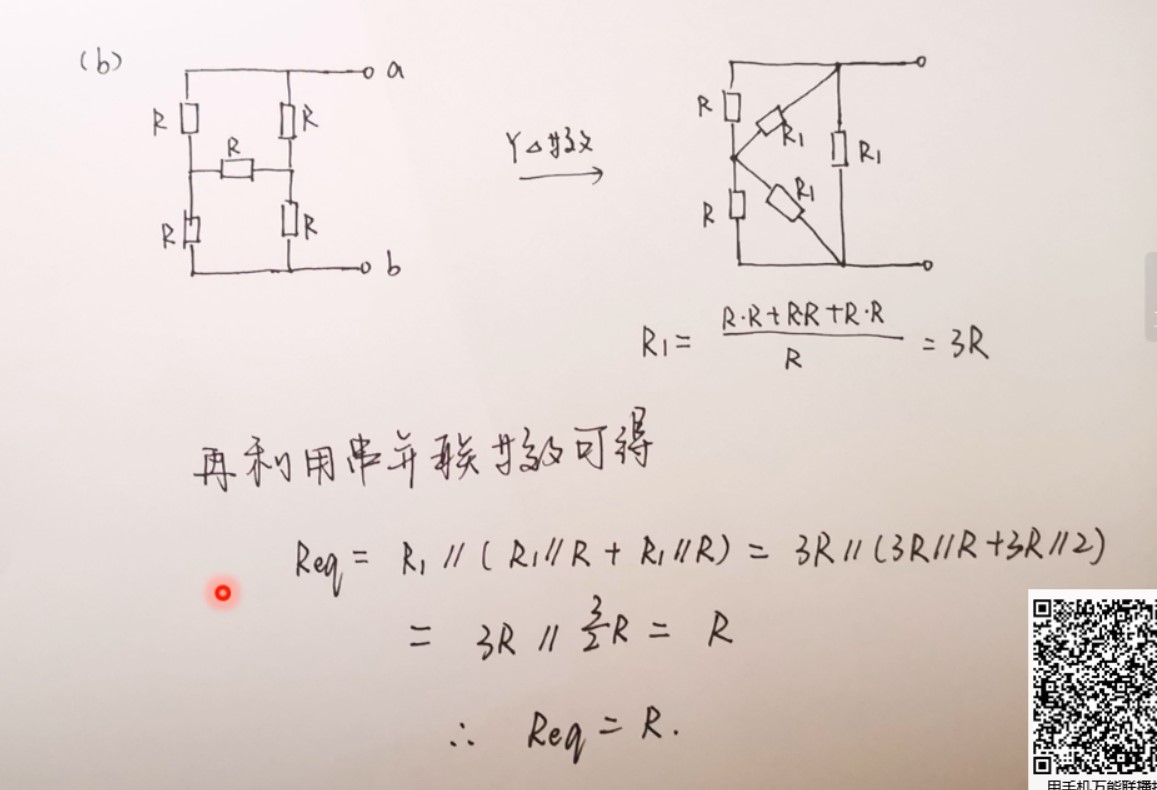 (b)
a
R
R
R
R
R
b
Y△等效
R
R₁
R₁
R
R₁
R₁ = (R·R+RR+R·R)/R = 3R
再利用串并联等效可得
Req = R₁ // ( R₁//R + R₁//R ) = 3R // (3R//R+3R//2)
= 3R // 3/2 R = R
∴ Req = R.
用手机万能联播扫